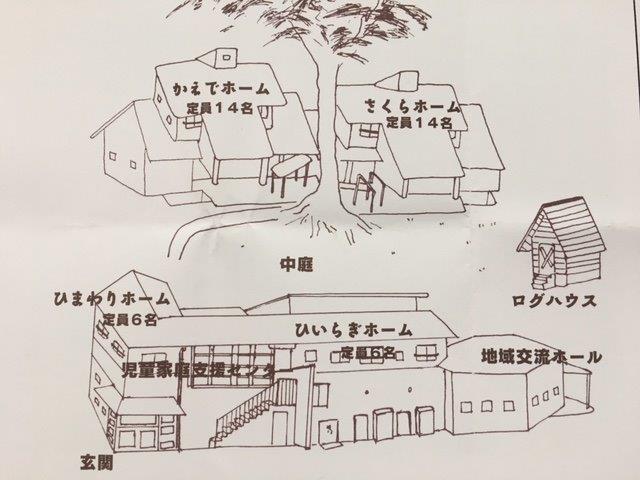 かえでホーム
定員14名
さくらホーム
定員14名
中庭
ログハウス
ひまわりホーム
定員6名
ひいらぎホーム
定員6名
児童家庭支援センター
地域交流ホール
玄関